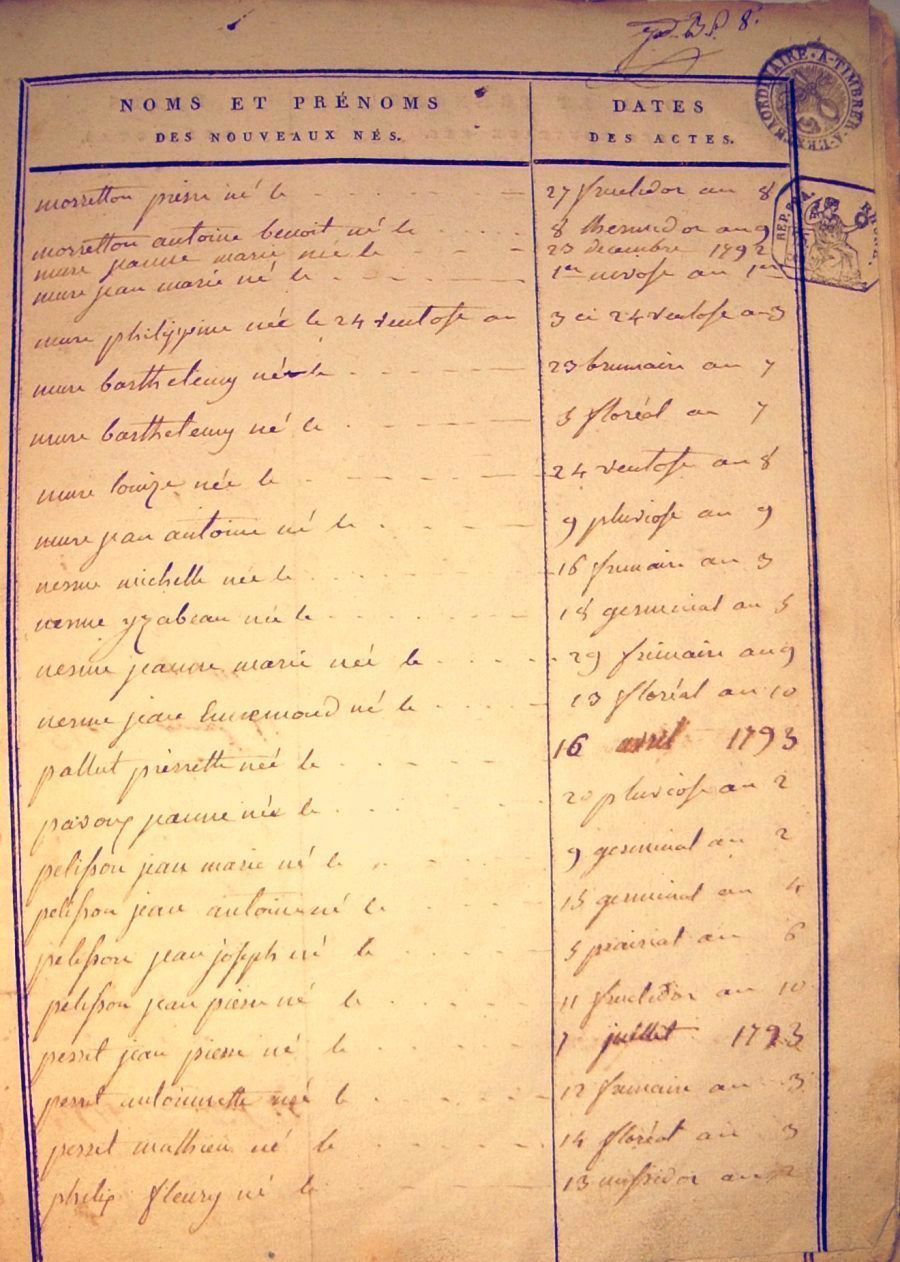 8.
A-TIMBRER-A-L'EXTRAORDINAIRE
REP. FRA.
NOMS ET PRÉNOMS DATES
DES NOUVEAUX NÉS. DES ACTES.
morretton pierre né le 27 fructidor an 8
morretton antoine benoit né le 8 thermidor an 9
mure jeanne marie née le 23 decembre 1792
mure jean marie né le 1er nivose an 1er
mure philippine née le 24 ventose an 3 ci 24 ventose an 3
mure barthelemy né le 23 brumaire an 7
mure barthelemy né le 3 floréal an 7
mure louize née le 24 ventose an 8
mure jean antoine né le 9 pluviose an 9
nesme michelle née le 16 frimaire an 3
nesme yzabeau née le 18 germinal an 5
nesme jeanne marie née le 29 frimaire an 9
nesme jean Ennemond né le 13 floréal an 10
pallut pierrette née le 16 avril 1793
jeanne née le 20 pluviose an 2
pelisson jean marie né le 9 germinal an 2
pelisson jean antoine né le 15 germinal an 4
pelisson jean joseph né le 5 prairial an 6
pelisson jean pierre né le 11 fructidor an 10
perret jean pierre né le 7 juillet 1793
perret antoinette née le 12 frimaire an 3
perret mathieu né le 14 floréal an 3
philip fleury né le 13 messidor an 2